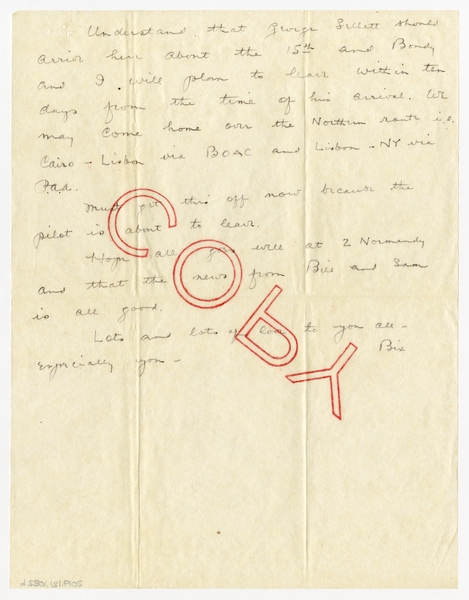 Understand that George Gillett should
arrive here about the 15th and Bondy
and I will plan to leave within ten
days from the time of his arrival. We
may come home over the Northern route i.e.
Cairo - Lisbon via BOAC and Lisbon - NY via
P.a.a.
Must get this off now because the
pilot is about to leave.
Hope all goes well at 2 Normandy
and that the news from Bill and Sam
is all good.
Lots and lots of love to you all -
especially you - Bix
COPY